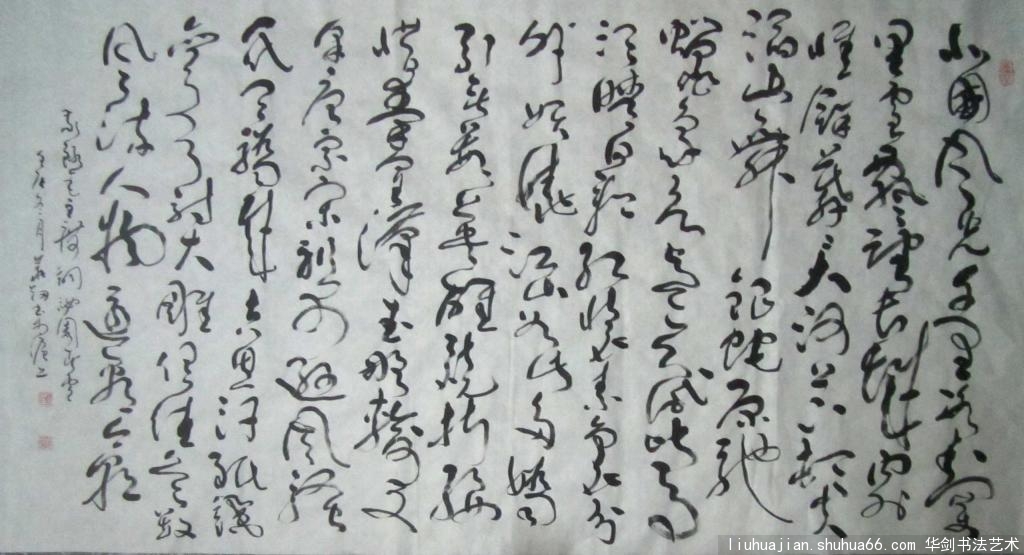 北國风光千里冰封万
里雪飄望长城内外
惟馀莽莽大河上下顿失
滔滔山舞银蛇原驰
蜡象欲与天公试比高
须晴日看红装素裹分
外妖娆江山如此多娇
引无数英雄竞折腰
惜秦皇漢武略输文
采唐宗宋祖稍逊风骚
一代天骄成吉思汗只識
弯弓射大雕俱往矣数
风流人物還看今朝
毛主席词沁園春雪
liuhuajian.shuhua66.com 华剑书法艺术